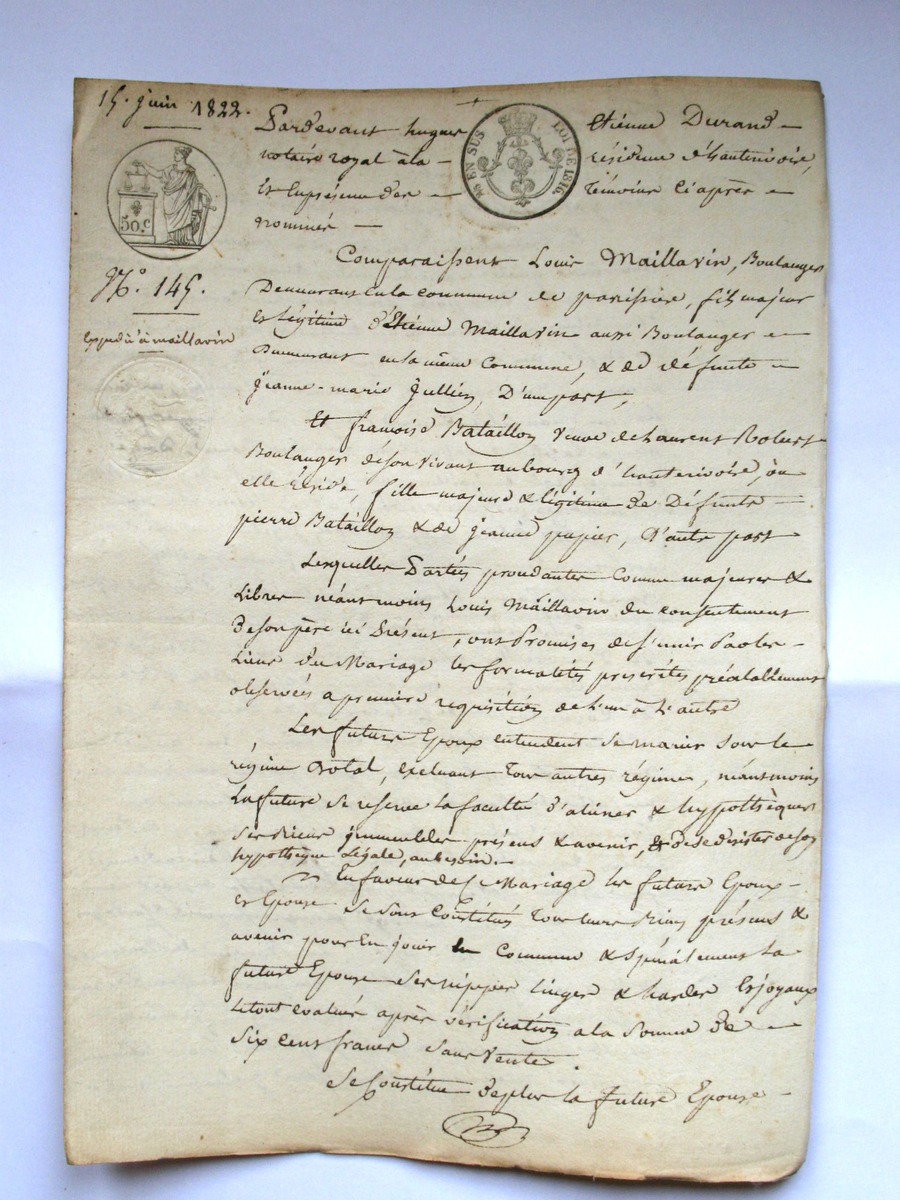 15. juin 1822.
Pardevant hugues Etiénne Durand
notaire royal à la résidence d'hauterivoire,
Et En présence des témoins ci après
nommés
50.C
EN SUS LOI DE 1816
N.° 145.
Expédié à maillavin
Comparaissent Louis Maillavin, Boulanger
Demeurant en la commune de parissieu, fils majeur
Et légitime d'Etiénne Maillavin aussi Boulanger
Demeurant en la même commune, & de défunte
Jeanne-marie Jullien, D'une part,
Et françoise Bataillon veuve de Laurent Robert
Boulanger de son vivant au bourg d'hauterivoire, ou
elle Réside, fille majeure & légitime de Défunts
pierre Bataillon & de jeanne papier, D'autre part
Lesquelles Parties procédantes Comme majeures &
Libres néantmoins Louis Maillavin du consentement
De son père ici Présent, ont Promises de s'unir Par les
Liens du Mariage les formalités prescrites préalablement
observées a première réquisition de l'un à l'autre
Les futurs Epoux entendent se marier sous le
régime Dotal, excluant tous autres régimes, néantmoins
La future se reserve la faculté d'aliéner & hypothéquer
ses Biens immeubles présens & avenir, & de se désister de son
hypothèque Légale, au besoin.
En faveur de ce Mariage les future Epoux
et Epouse se sont Constitués Tous leurs Biens présens &
avenir pour En jouir En Commun & spécialement La
future Epouse ses nippes linges & hardes Et joyaux
Le tout évalués après vérification a la Somme de
Six Cent francs Sans Vente.
Se Constitue De plus la future Epouse